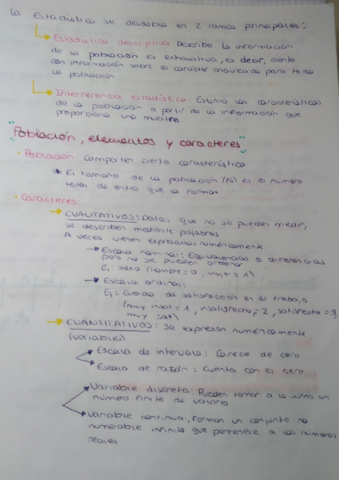 La Estadística se desdobla en 2 ramas principales:
Estadística descriptiva: Describe la información
de la población es exhaustiva, es decir, cuenta
con información sobre el carácter analizado para toda
la población
Interferencia estadística: Estima las características
de la población a partir de la información que
proporciona una muestra
"Población, elementos y caracteres"
· Población comparten cierta característica
* El tamaño de la población (N) es el número
total de entes que la forman
· Caracteres:
CUALITATIVOS: Datos que no se pueden medir,
se describen mediante palabras
A veces vienen expresados numéricamente.
Escala nominal: Equivalencias o diferencias
pero no se pueden ordenar
Ej: sexo (hombre = 0, mujer = 1)
Escala ordinal:
Ej: Grado de satisfacción en el trabajo
(muy insat = 1, insatisfecho = 2, satisfecho = 3
muy sat)
CUANTITATIVOS: Se expresan numéricamente
(variables)
Escala de intervalo: Carece de cero
Escala de razón: Cuenta con el cero
Variable discreta: Pueden tomar a lo sumo un
número finito de valores
Variable continua: Forman un conjunto no
numerable infinito que pertenece a los números
reales